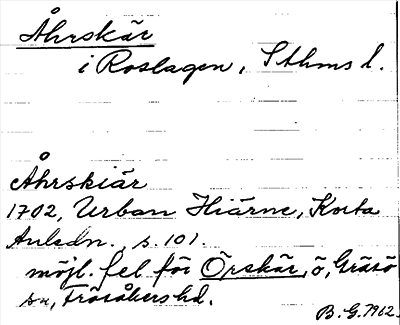 Åhrskär
i Roslagen, Sthms l.
Åhrskiär
1702, Urban Hiärne, Korta
Anledn., s. 101.
möjl. fel för Örskär, ö, Gräsö
sn, Frösåkers hd.
B. G. 1962.